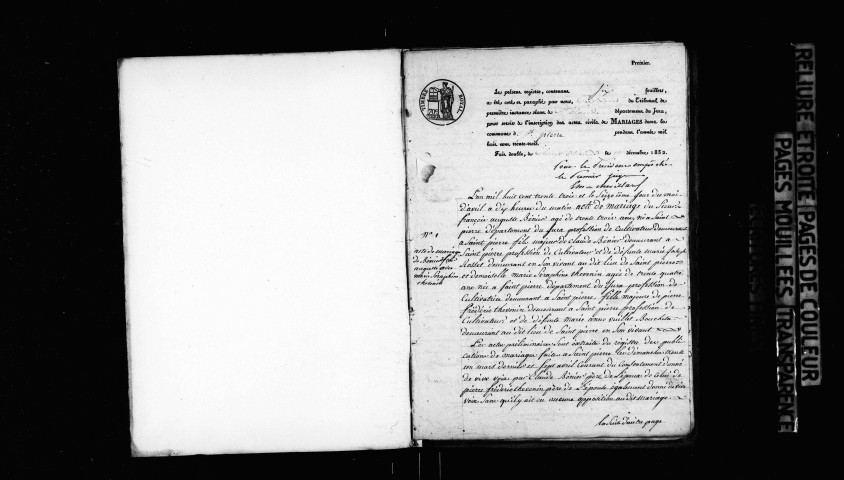 Premier.
Le présent registre, contenant six feuillets,
a été coté et paraphé par nous, du Tribunal de
première instance séant à département du Jura,
pour servir à l'inscription des actes civils de MARIAGES dans la
commune d. St pierre pendant l'année mil
huit cent trente-trois.
Fait double, le décembre 1832.
Pour le Président empêché
le Premier juge
TIMBRE ROYAL
L'an mil huit cent trente trois et le Seizième jour du moi
d'avril a dix heures du matin acte de mariage du Sieur
françois auguste Bénier agé de trente trois ans, né a Saint
pierre département du Jura profession de Cultivateur demeurant
a Saint pierre fils majeur de Claude Bénier demeurant a
Saint pierre profession de Cultivateur et de défunte marie
demeurant en Son vivant au dit lieu de Saint pierre
et demoiselle marie Séraphine thevenin agée de trente quatre
ans née a Saint pierre département du Jura profession de
Cultivatrice demeurant a Saint pierre, fille majeure de pierre
frédéric thevenin demeurant a Saint pierre profession de
Cultivateur et de défunte marie anne vuillet
demeurant au dit lieu de Saint pierre en Son vivant
Les actes préliminaires Sont extraits du registre des publi
cations de mariage faites a Saint pierre les dimanches trente
un mars dernier et Sept avril courant du Consentement donné
de vive voix par Claude Bénier père de l'époux de celui de
pierre frédéric thevenin père de l'épouse également donné de vive
voix Sans qu'il y ait eu aucune opposition au dit mariage
la Suite d'autre page
N.° 1
acte de mariage
de Bénier françois
auguste avec
marie Séraphine
thevenin
RELIURE ETROITE PAGES DE COULEUR
PAGES MOUILLEES TRANSPARENCE